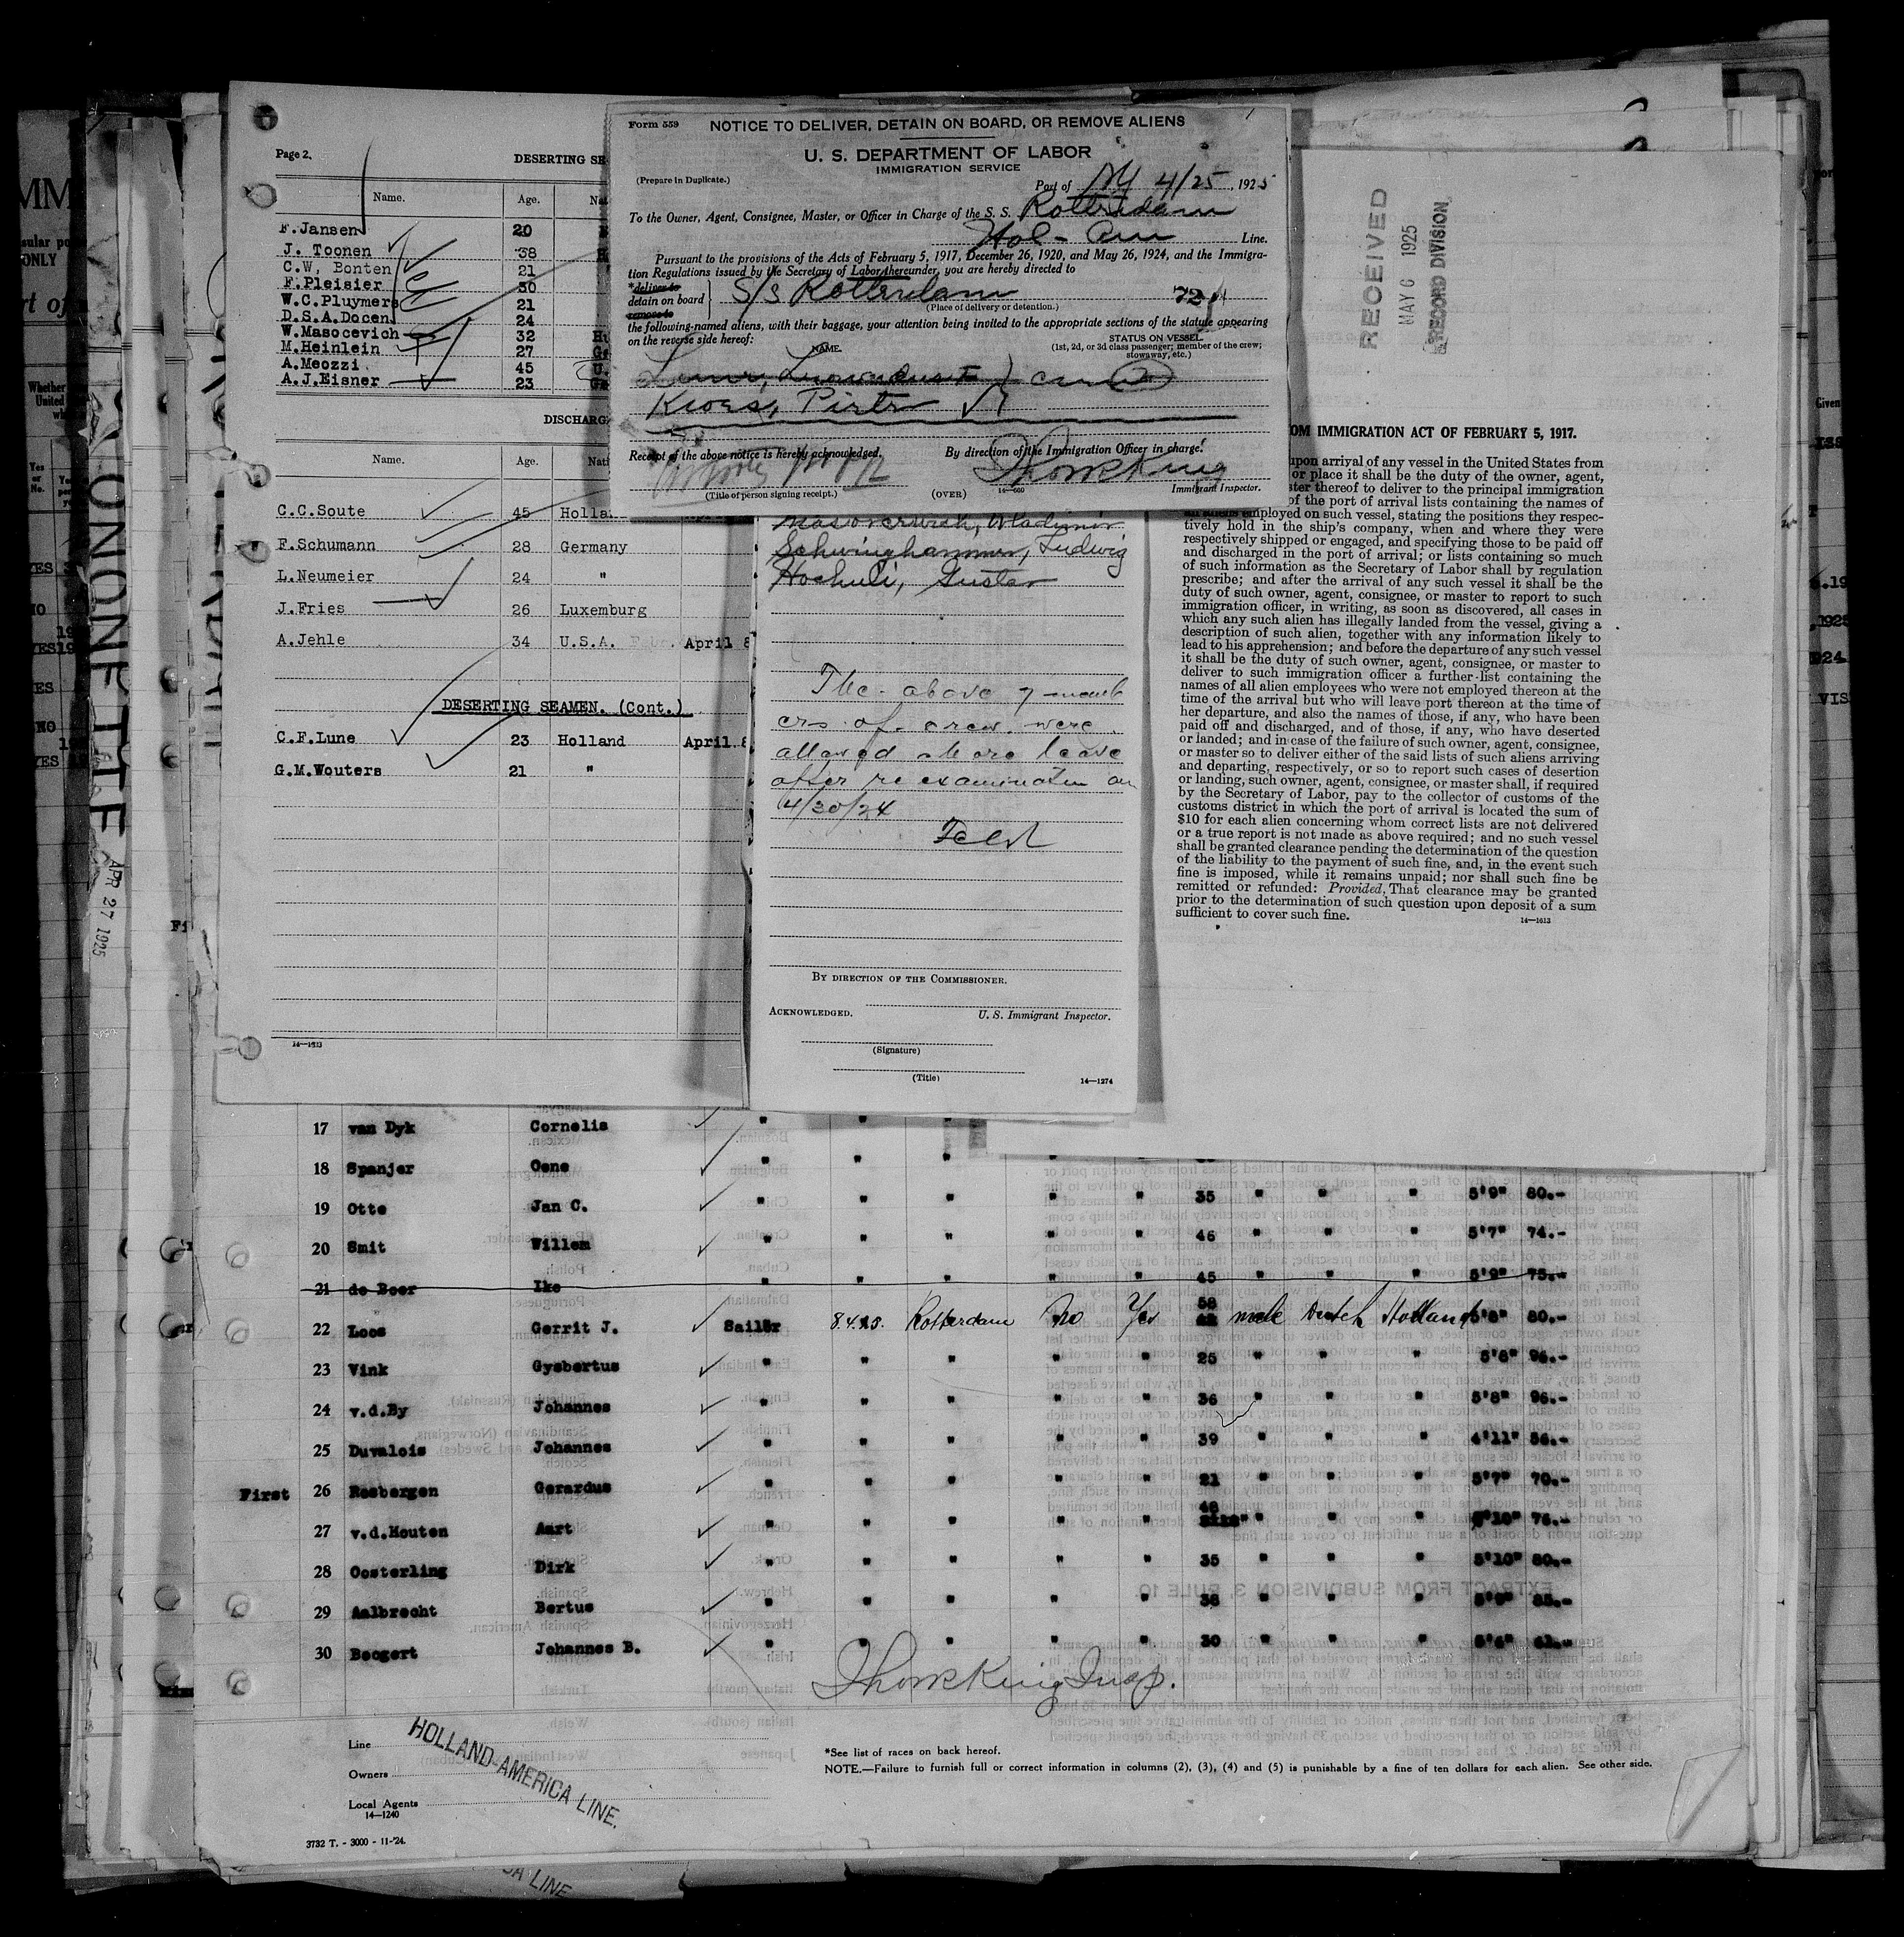 Page 2.
DESERTING SE
Name. Age. Nat
F.Jansen 20
J. Toonen 38
C.W. Bonten 21
F.Pleisier 30
W.C.Pluymers 21
D.S.A.Docen 24
W.Masocevich 32 Hu
M.Heinlein 27 Ge
A.Meozzi 45 U.
A.J.Eisner 23 Ge
DISCHARG
Name. Age. Nati
C.C.Soute 45 Holla
F.Schumann 28 Germany
L.Neumeier 24 "
J.Fries 26 Luxemburg
A.Jehle 34 U.S.A. April 8
DESERTING SEAMEN. (Cont.)
C.F.Lune 23 Holland April 8
G.M.Wouters 21 "
14—1233
Form 559 NOTICE TO DELIVER, DETAIN ON BOARD, OR REMOVE ALIENS
U. S. DEPARTMENT OF LABOR
IMMIGRATION SERVICE
(Prepare in Duplicate.)
Port of NY 4/25, 1925
To the Owner, Agent, Consignee, Master, or Officer in Charge of the S. S. Rotterdam
Hol-Am Line.
Pursuant to the provisions of the Acts of February 5, 1917, December 26, 1920, and May 26, 1924, and the Immigra-
tion Regulations issued by the Secretary of Labor thereunder, you are hereby directed to
*deliver to
detain on board S/S Rotterdam
remove to
(Place of delivery or detention.)
the following-named aliens, with their baggage, your attention being invited to the appropriate sections of the statute appearing
on the reverse side hereof:
NAME. STATUS ON VESSEL
(1st, 2d, or 3d class passenger; member of the crew;
stowaway, etc.)
Kroes, Pieter
Receipt of the above notice is hereby acknowledged.
By direction of the Immigration Officer in charge:
Thos K King
(Title of person signing receipt.) (OVER) 14—600 Immigrant Inspector.
Masocerwich, Wladimir
Schwinghammer, Ludwig
Hochuli, Gustav
The above 7 memb
ers of crew were
allowed shore leave
after re examination on
4/30/24
BY DIRECTION OF THE COMMISSIONER.
ACKNOWLEDGED.
U. S. Immigrant Inspector.
(Signature)
(Title)
14—1274
RECEIVED
MAY 6 1925
RECORD DIVISION
OM IMMIGRATION ACT OF FEBRUARY 5, 1917.
upon arrival of any vessel in the United States from
or place it shall be the duty of the owner, agent,
ster thereof to deliver to the principal immigration
of the port of arrival lists containing the names of
all aliens employed on such vessel, stating the positions they respec-
tively hold in the ship's company, when and where they were
respectively shipped or engaged, and specifying those to be paid off
and discharged in the port of arrival; or lists containing so much
of such information as the Secretary of Labor shall by regulation
prescribe; and after the arrival of any such vessel it shall be the
duty of such owner, agent, consignee, or master to report to such
immigration officer, in writing, as soon as discovered, all cases in
which any such alien has illegally landed from the vessel, giving a
description of such alien, together with any information likely to
lead to his apprehension; and before the departure of any such vessel
it shall be the duty of such owner, agent, consignee, or master to
deliver to such immigration officer a further list containing the
names of all alien employees who were not employed thereon at the
time of the arrival but who will leave port thereon at the time of
her departure, and also the names of those, if any, who have been
paid off and discharged, and of those, if any, who have deserted
or landed; and in case of the failure of such owner, agent, consignee,
or master so to deliver either of the said lists of such aliens arriving
and departing, respectively, or so to report such cases of desertion
or landing, such owner, agent, consignee, or master shall, if required
by the Secretary of Labor, pay to the collector of customs of the
customs district in which the port of arrival is located the sum of
$10 for each alien concerning whom correct lists are not delivered
or a true report is not made as above required; and no such vessel
shall be granted clearance pending the determination of the question
of the liability to the payment of such fine, and, in the event such
fine is imposed, while it remains unpaid; nor shall such fine be
remitted or refunded: Provided, That clearance may be granted
prior to the determination of such question upon deposit of a sum
sufficient to cover such fine.
14—1613
APR 27 1925
17 van Dyk Cornelis " " "
18 Spanjer Oene " " " " "
19 Otte Jan C. " " " " " 35 " " " 5'9" 80.-
20 Smit Willem " " " " " 46 " " " 5'7" 74.-
21 de Boer Ike " " " " " 45 " " " 5'9" 75.-
22 Loos Gerrit J. Sailor 8.4.25. Rotterdam No Yes 58 male Dutch Holland 5'8" 80.-
23 Vink Gysbertus " " " " " 25 " " " 5'8" 96.-
24 v.d.By Johannes " " " " " 36 " " " 5'8" 96.-
25 Duvalois Johannes " " " " " 39 " " " 4'11" 56.-
First 26 Rosbergen Gerardus " " " " " 21 " " " 5'7" 70.-
27 v.d.Houten Aart " " " " " 48 " " " 5'10" 76.-
28 Oosterling Dirk " " " " " 35 " " " 5'10" 80.-
29 Aalbrecht Bertus " " " " " 38 " " " 5'9" 85.-
30 Boogert Johannes B. " " " " " 30 " " " 5'6" 61.-
Thos K King Insp.
Line
Owners
Local Agents
14—1240
HOLLAND-AMERICA LINE.
*See list of races on back hereof.
NOTE.—Failure to furnish full or correct information in columns (2), (3), (4) and (5) is punishable by a fine of ten dollars for each alien. See other side.
3732 T. - 3000 - 11-'24.